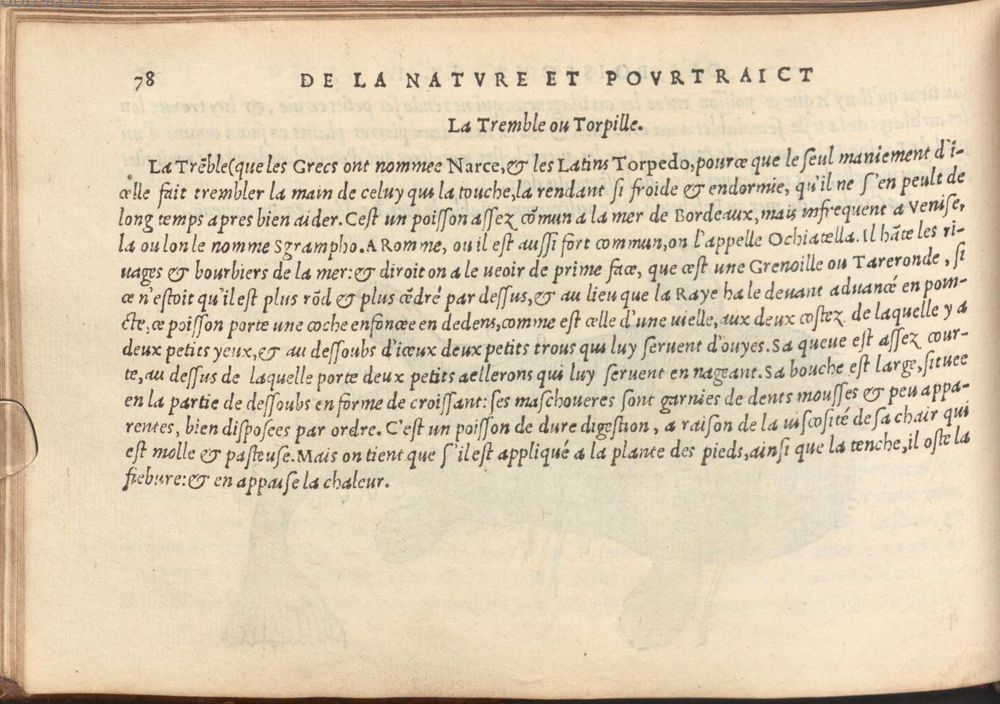 78 DE LA NATVRE ET POVRTRAICT
La Tremble ou Torpille.
La Trẽble (que les Grecs ont nommee Narce, & les Latins Torpedo, pource que le seul maniement d'i-
celle fait trembler la main de celuy qui la touche, la rendant si froide & endormie, qu'il ne s'en peult de
long temps apres bien aider. Cest un poisson assez cõmun a la mer de Bordeaux, mais infrequent a Venise,
la ou lon le nomme Sgrampho. A Romme, ou il est aussi fort commun, on l'appelle Ochiatella. Il hãte les ri-
uages & bourbiers de la mer: & diroit on a le ueoir de prime face, que cest une Grenoille ou Tareronde, si
ce n'estoit qu'il est plus rõd & plus cẽdré par dessus, & au lieu que la Raye ha le deuant aduancé en poin-
cte, ce poisson porte une coche enfoncee en dedens, comme est celle d'une uielle, aux deux costez de laquelle y a
deux petits yeux, & au dessoubs d'iceux deux petits trous qui luy seruent d'ouyes. Sa queue est assez cour-
te, au dessus de laquelle porte deux petits aellerons qui luy seruent en nageant. Sa bouche est large, situee
en la partie de dessoubs en forme de croissant: ses maschoueres sont garnies de dents mousses & peu appa-
rentes, bien disposees par ordre. C'est un poisson de dure digestion, a raison de la uiscosité de sa chair qui
est molle & pasteuse. Mais on tient que s'il est appliqué a la plante des pieds, ainsi que la tenche, il oste la
fiebure: & en appaise la chaleur.